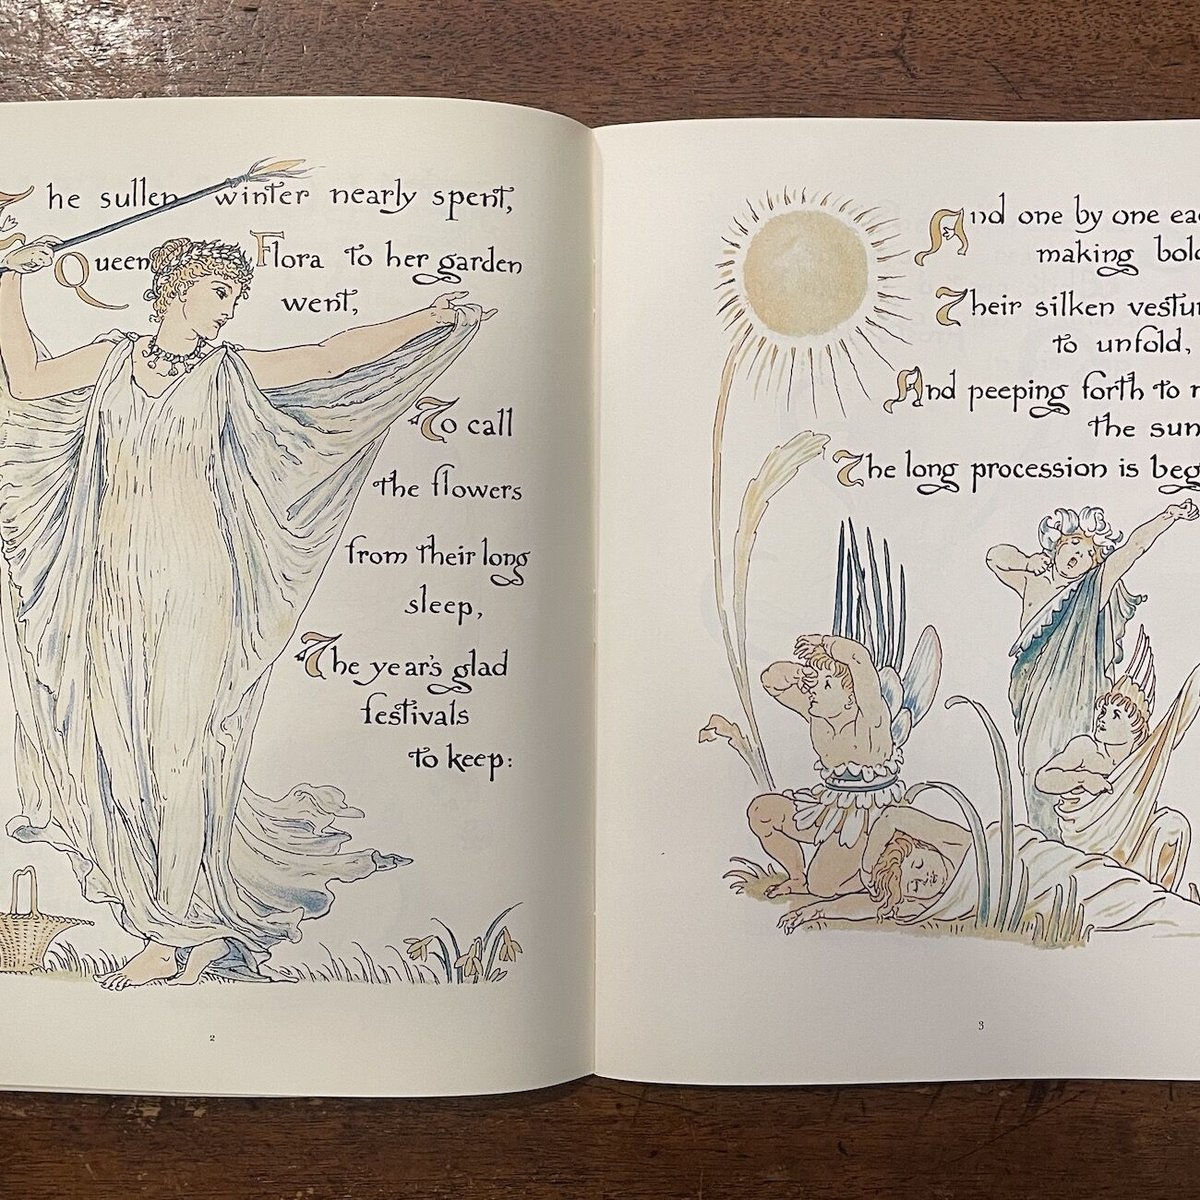 The sullen winter nearly spent,
Queen Flora to her garden
went,
To call
the flowers
from their long
sleep,
The year's glad
festivals
to keep:
2
And one by one
making
Their silken
to unfold,
And peeping forth to
the sun
The long procession is
3